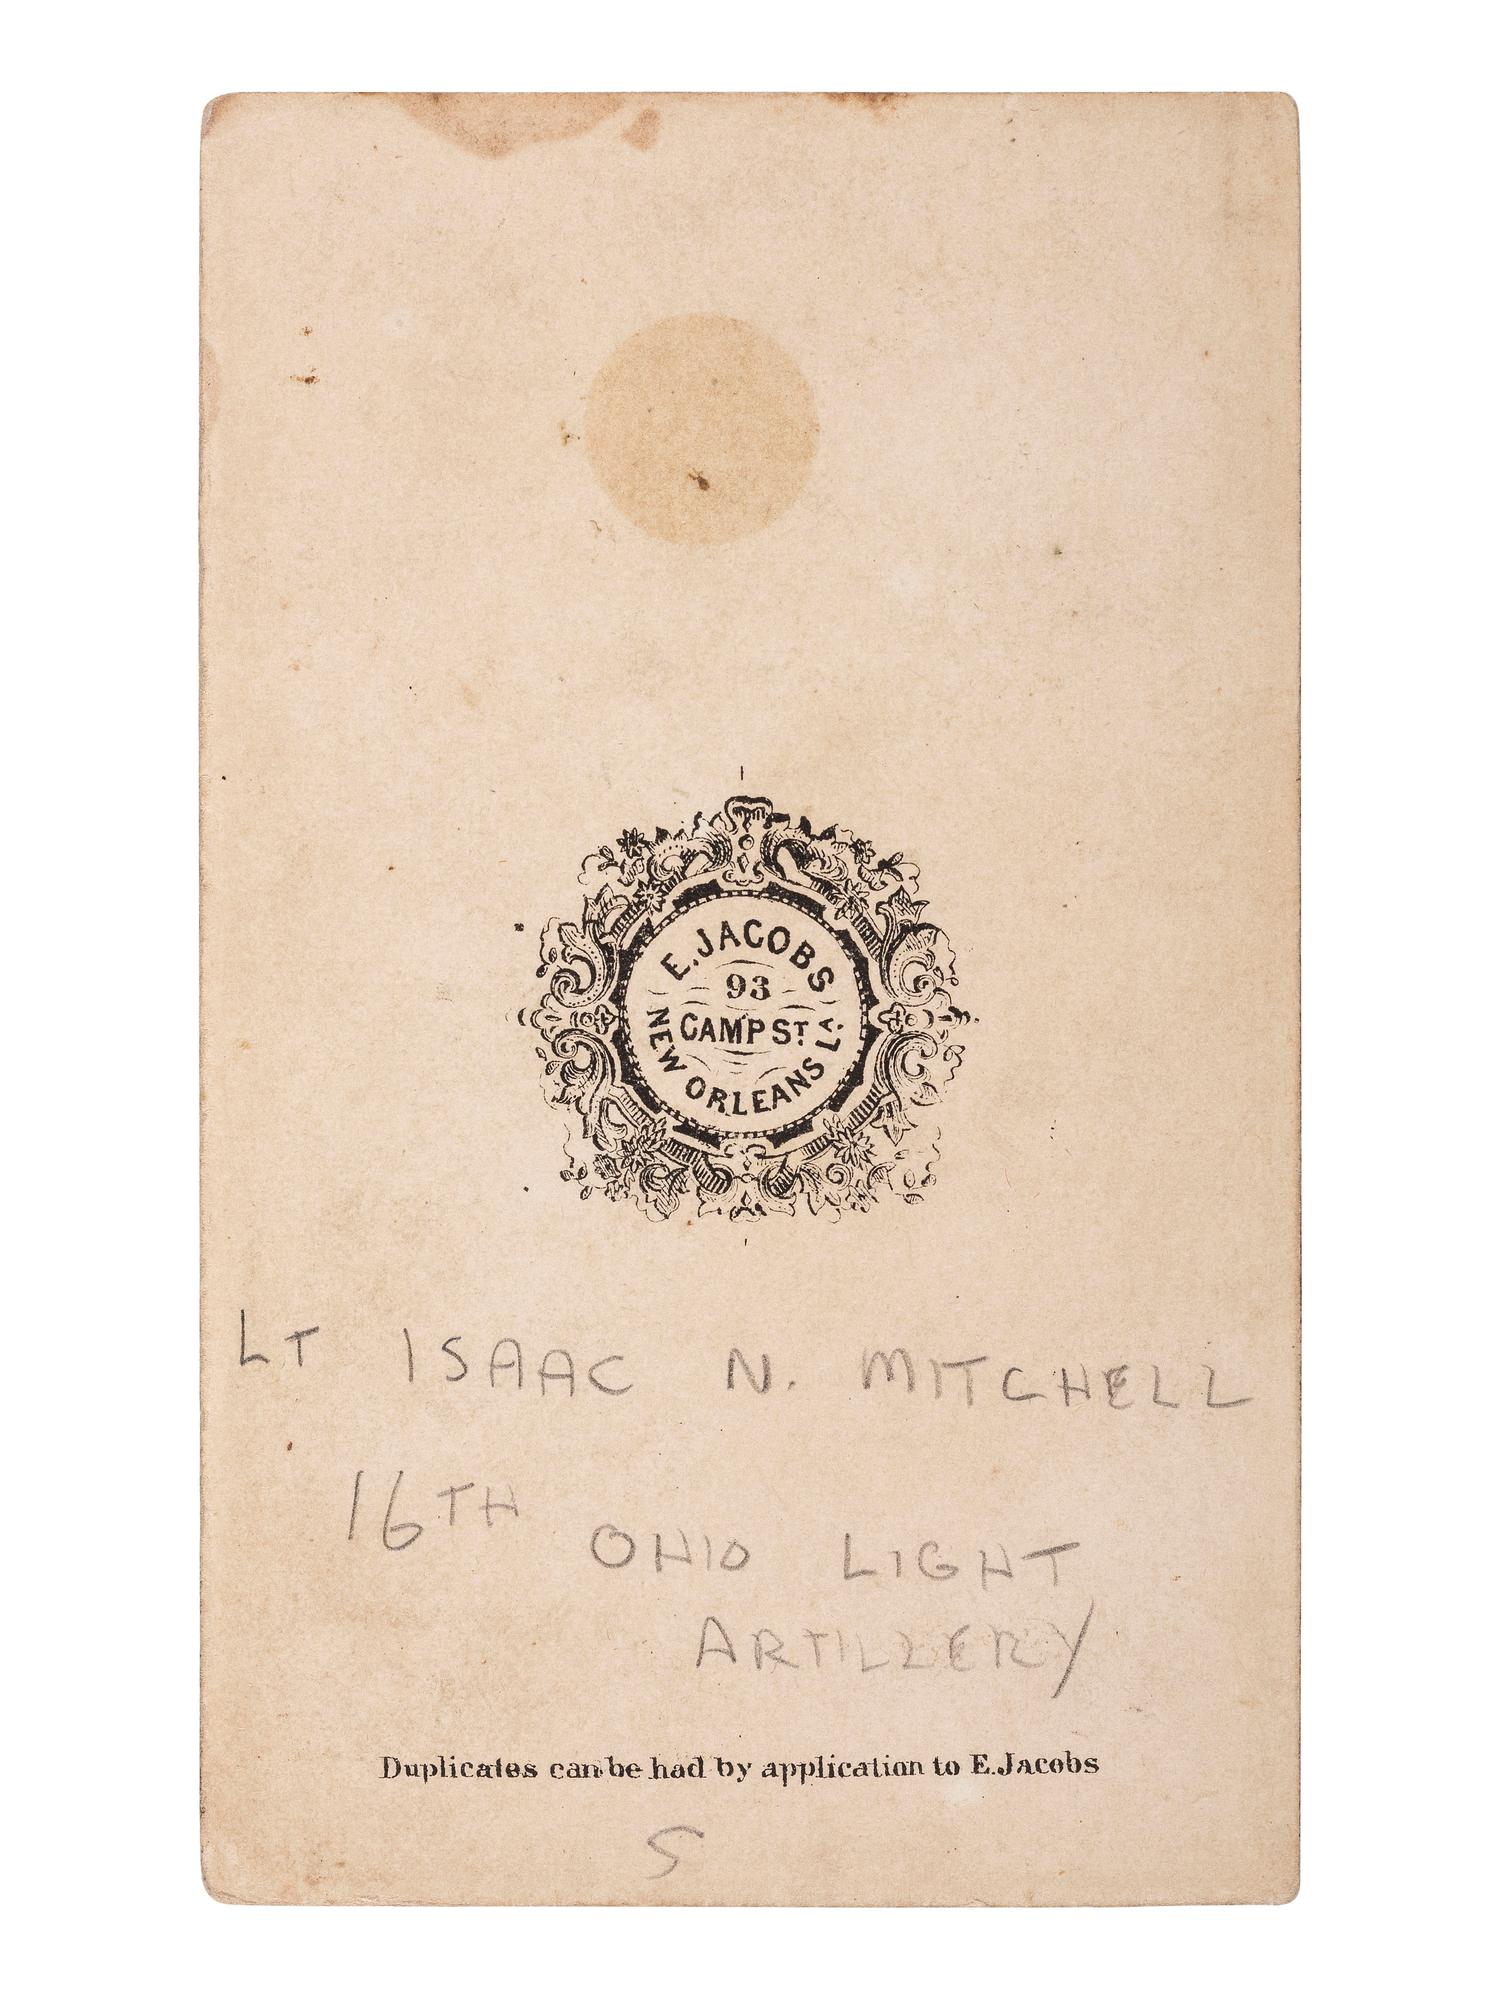 E. JACOBS
93
CAMP ST
NEW ORLEANS LA.
LT ISAAC N. MITCHELL
16TH OHIO LIGHT
ARTILLERY
Duplicates can be had by application to E. Jacobs
5